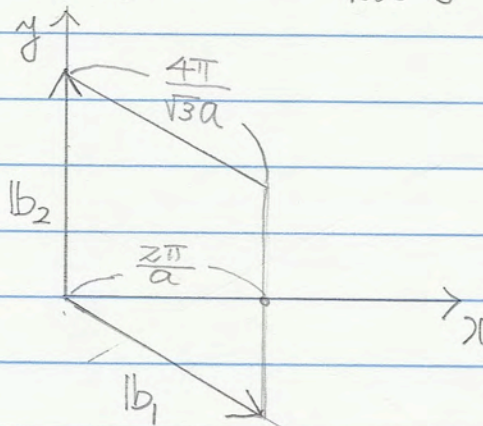 y
4π/√3a
𝕓₂
2π/a
x
𝕓₁